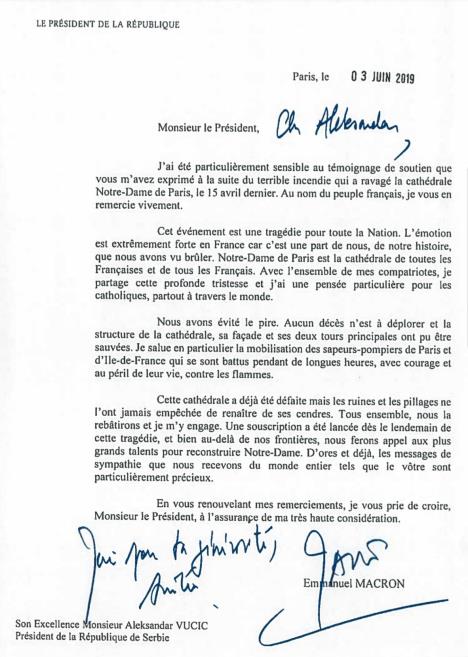 LE PRÉSIDENT DE LA RÉPUBLIQUE
Paris, le 03 JUIN 2019
Monsieur le Président, Cher Aleksandar,
J'ai été particulièrement sensible au témoignage de soutien
que vous m'avez exprimé à la suite du terrible incendie qui a ravagé la cathédrale
Notre-Dame de Paris, le 15 avril dernier. Au nom du peuple français, je vous en
remercie vivement.
Cet événement est une tragédie pour toute la Nation. L'émotion
est extrêmement forte en France car c'est une part de nous, de notre histoire,
que nous avons vu brûler. Notre-Dame de Paris est la cathédrale de toutes les
Françaises et de tous les Français. Avec l'ensemble de mes compatriotes, je
partage cette profonde tristesse et j'ai une pensée particulière pour les
catholiques, partout à travers le monde.
Nous avons évité le pire. Aucun décès n'est à déplorer et la
structure de la cathédrale, sa façade et ses deux tours principales ont pu être
sauvées. Je salue en particulier la mobilisation des sapeurs-pompiers de Paris et
d'Ile-de-France qui se sont battus pendant de longues heures, avec courage et
au péril de leur vie, contre les flammes.
Cette cathédrale a déjà été défaite mais les ruines et les pillages ne
l'ont jamais empêchée de renaître de ses cendres. Tous ensemble, nous la
rebâtirons et je m'y engage. Une souscription a été lancée dès le lendemain de
cette tragédie, et bien au-delà de nos frontières, nous ferons appel aux plus
grands talents pour reconstruire Notre-Dame. D'ores et déjà, les messages de
sympathie que nous recevons du monde entier tels que le vôtre sont
particulièrement précieux.
En vous renouvelant mes remerciements, je vous prie de croire,
Monsieur le Président, à l'assurance de ma très haute considération.
ta générosité,
Amitié
Emmanuel MACRON
Son Excellence Monsieur Aleksandar VUCIC
Président de la République de Serbie